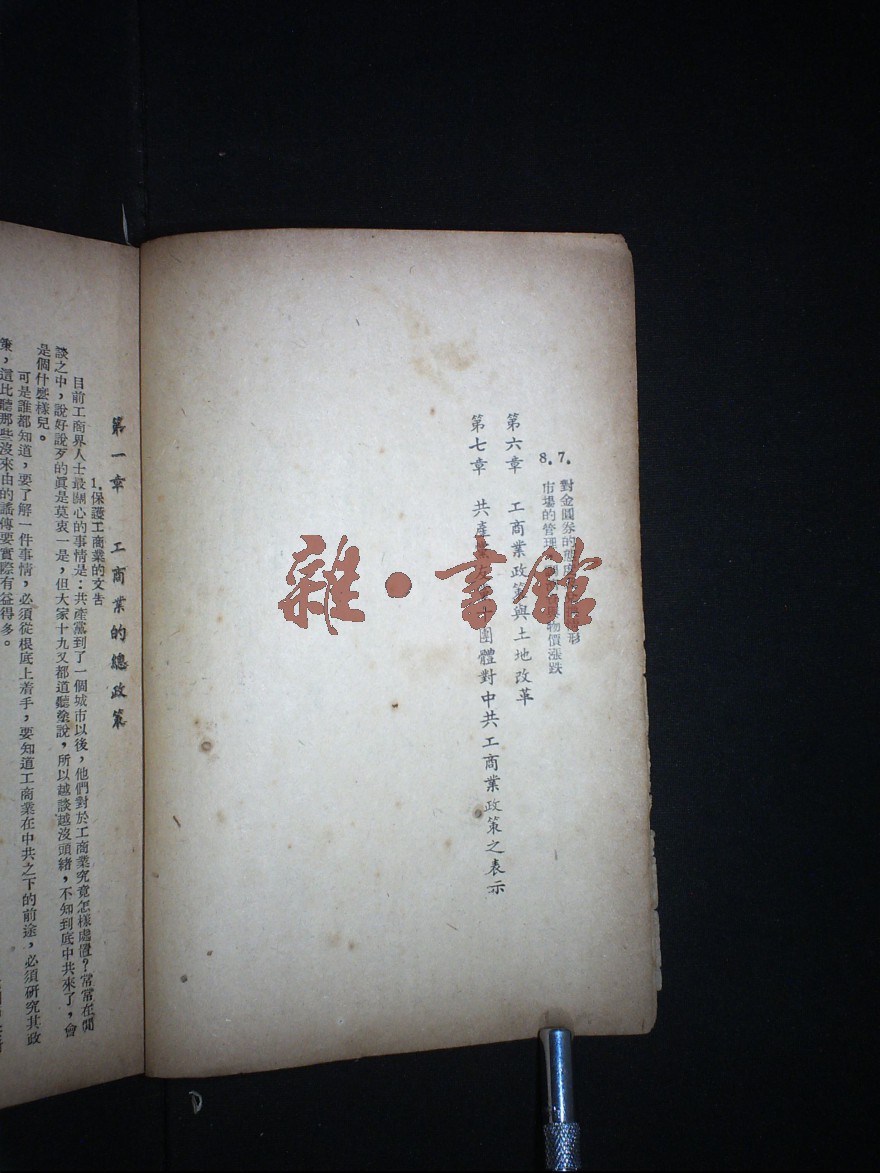 7. 對金圓券的態度
8. 市場的管理 物價漲跌
第六章 工商業政策與土地改革
第七章 共產黨 團體對中共工商業政策之表示
雜·書館
第一章 工商業的總政策
1.保護工商業的文告
目前工商界人士最關心的事情是:共產黨到了一個城市以後,他們對於工商業究竟怎樣處置?常常在閒
談之中,說好說歹的眞是莫衷一是,但大家十九又都道聽塗說,所以越談越沒頭緒,不知到底中共來了,會
是個什麼樣兒。
可是誰都知道,要了解一件事情,必須從根底上着手,要知道工商業在中共之下的前途,必須研究其政
策,這比聽那些沒來由的謠傳要實際有益得多。